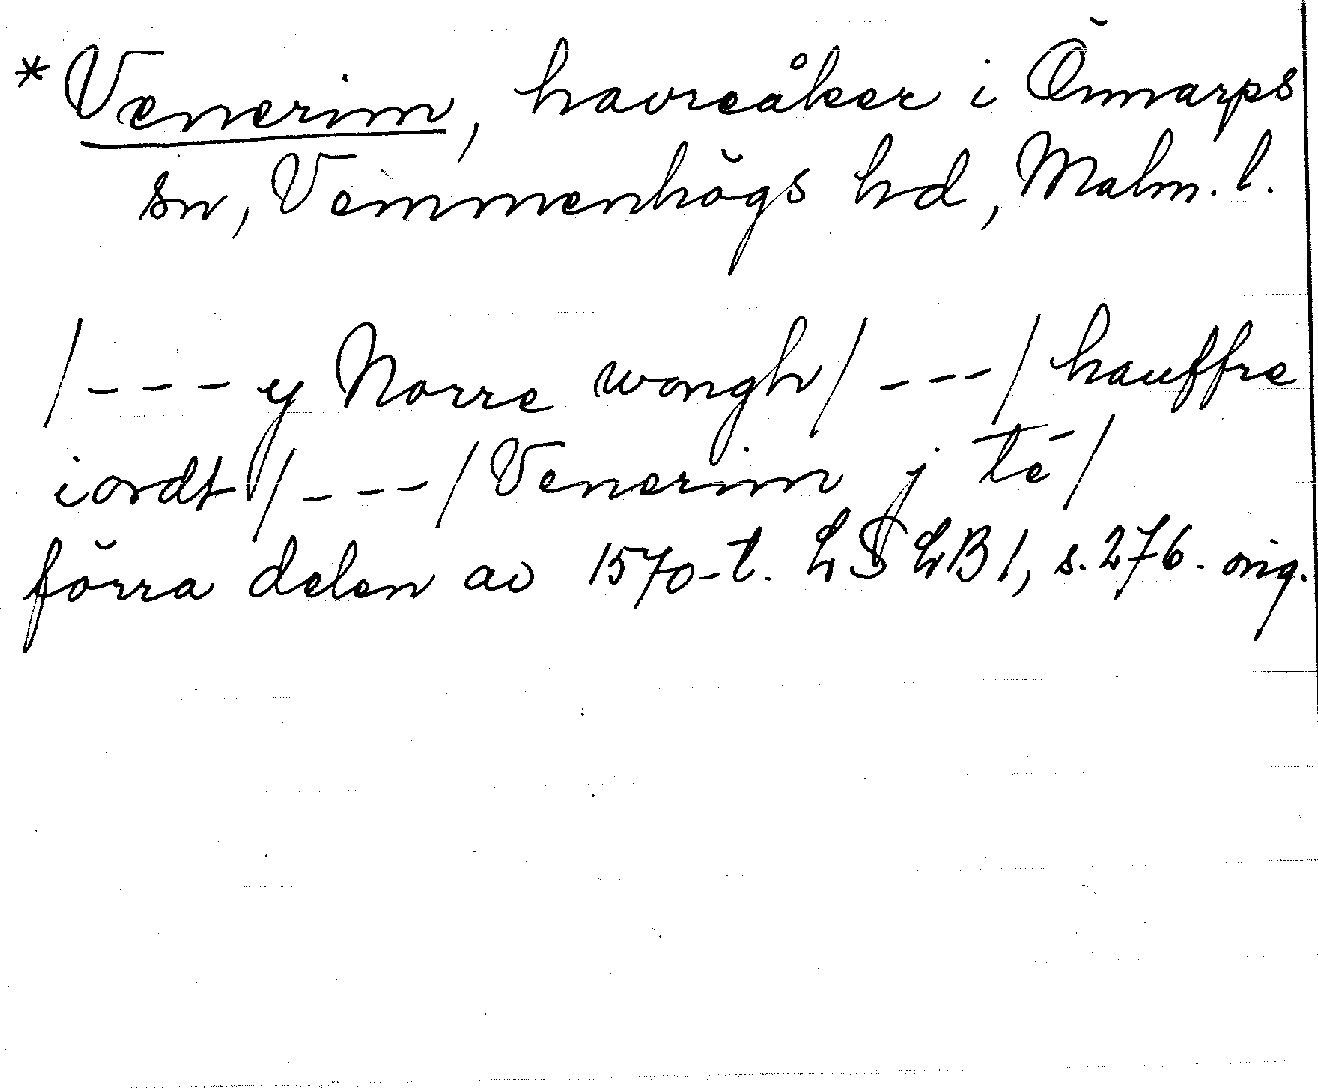 *Venerim, havreåker i Önnarps
sn, Vemmenhögs hd, Malm. l.
/--- y Norre wongh/ ---/ hauffre
iordt/ ---/ Venerim j té/
förra delen av 1570-t. LSLB1, s. 276. orig.